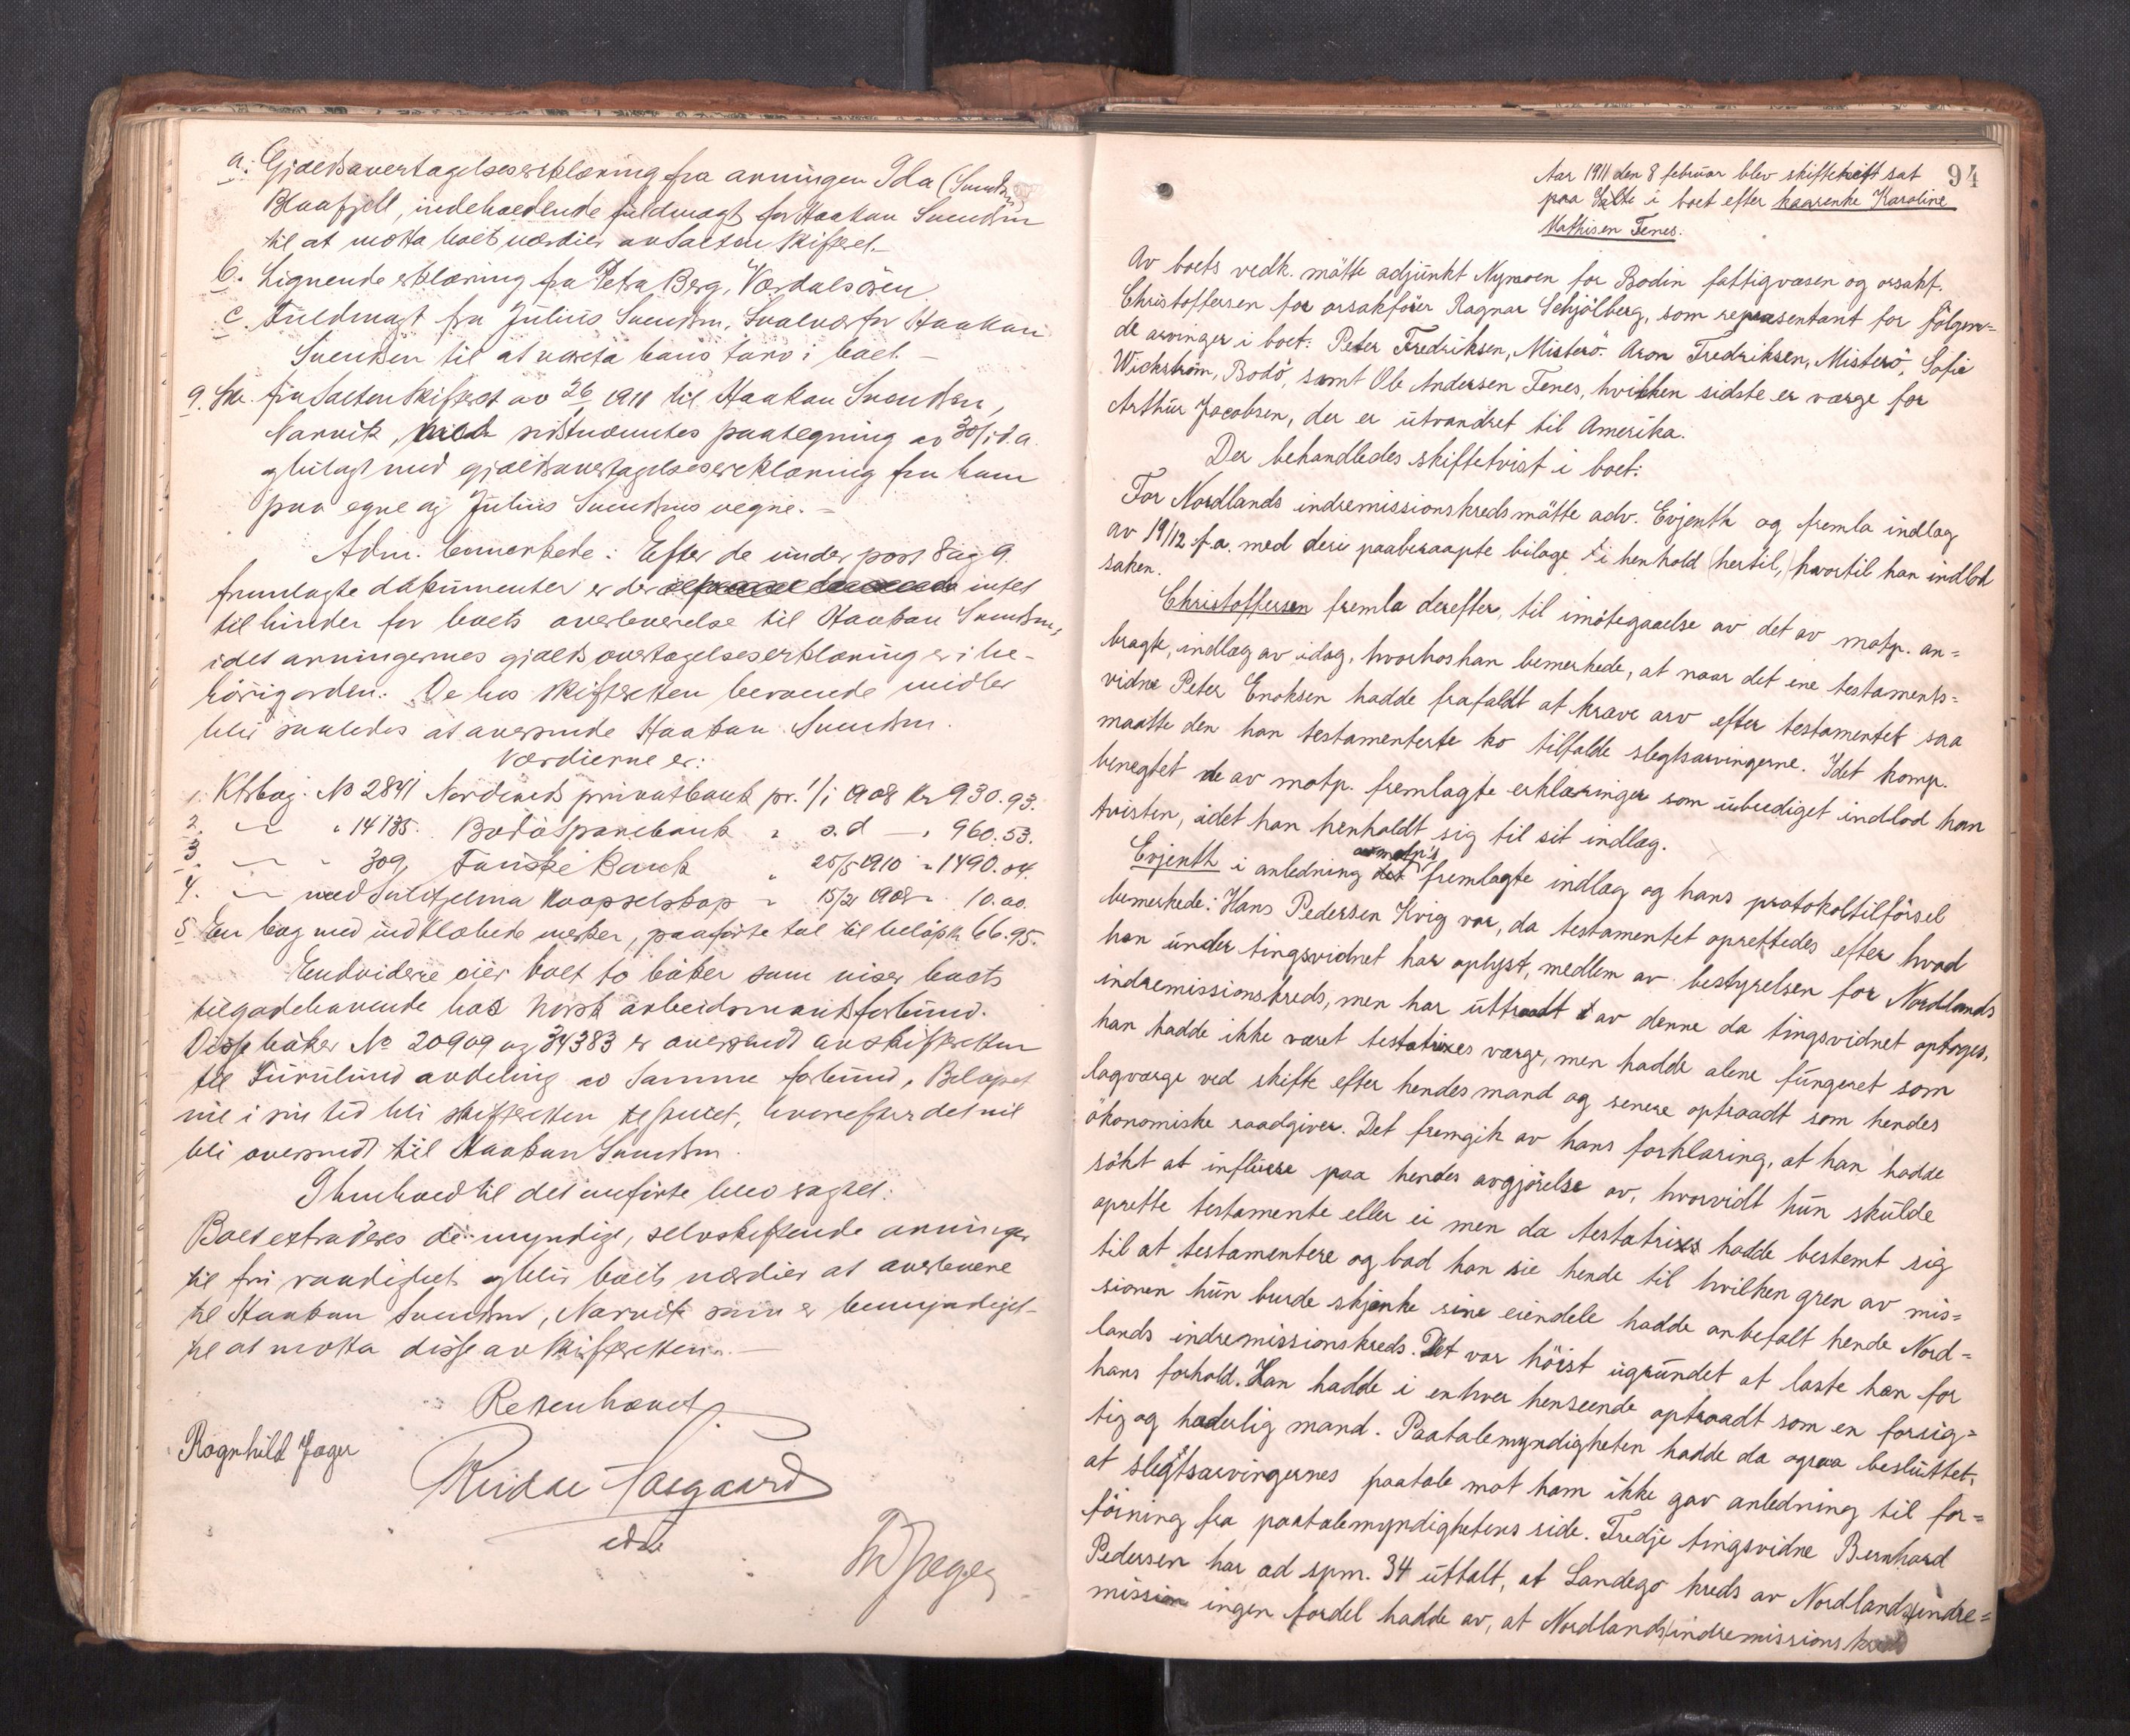 a. Gjældsovertagelseserklæring fra arvingen Ida (Svendsen)
Blaafjell, indeholdende fuldmagt for Haakon Svendsen
til at motta boets værdier av Salten skifteret.-
b. Lignende erklæring fra Petra Berg, Værdalsören.
c. Fuldmagt fra Julius Svendsen, Svolvær for Haakon
Svendsen til at vareta hans tarv i boet. -
9. Skr. fra Salten skifteret av 26/1 1911 til Haakon Svendsen,
Narvik, med sistnævntes paategning av 30/1 d.a.
og bilagt med gjældsovertagelseserklæring fra ham
paa egne og Julius Svendsens vegne. -
Adm. bemerkede: Efter de under post 8 og 9
fremlagte dokumenter er der intet
til hinder for boets overleverelse til Haakon Svendsen,
idet arvingernes gjældsovertagelseserklæring er i be-
hörig orden. De hos skifteretten beroende midler
blir saaledes at oversende Haakon Svendsen.
Værdierne er:
1. Ktrbog. No 2841 Nordlands privatbank pr. 1/1 1908 kr 930.93.
2. — " 14135. Bodö Sparebank " s.d — " 960.53.
3. — " 309, Fauske Bank " 25/5 1910 " 1490.04.
4. — med Sulitjelma Kaapselskap " 15/2 1908 " 10.00.
5 En bog med indklæbede merker, paaförte tal til beløp kr 66.95.
Endvidere eier boet to böker som viser boets
tilgodehavende hos Norsk arbeidsmandsforbund.
Disse böker No 20909 og 34383 er oversendt av skifteretten
til Furulund avdeling av samme forbund, Belöpet
vil i sin tid bli skifteretten tilstillet, hvorefter det vil
bli oversendt til Haakon Svendsen.
I henhold til det anförte blev sagtet:
Boet extraderes de myndige, selvskiftende arvinger
til fri raadighet og blir boets værdier at overlevere
til Haakon Svendsen, Narvik som er bemyndiget
til at motta disse av skifteretten. —
Retten hævet
Ragnhild Jæger
Reidar Aasgaard
edsv
Jæger
94
Aar 1911 den 8 februar blev skifteret sat
paa Salte i boet efter Kaarenke Karoline
Mathisen Fenes.
Av boets vedk. mötte adjunkt Nymoen for Bodin fattigvæsen og orsakf.
Christoffersen for orsakförer Ragnar Schjölberg, som representant for fölgen=
de arvinger i boet: Peter Fredriksen, Misterö. Aron Fredriksen, Misterö, Sofie
Wichström, Bodö, samt Ole Andersen Fenes, hvilken sidste er værge for
Arthur Jacobsen, der er utvandret til Amerika.
Der behandledes skiftetvist i boet:
For Nordlands indremissionskreds mötte adv. Evjenth og fremla indlæg
av 19/12 f.a. med deri paaberaapte bilage i henhold hertil, hvortil han indlod
saken.
Christoffersen fremla derefter, til imötegaaelse av det av motp. an=
bragte, indlæg av idag, hvorhos han bemerkede, at naar det ene testaments=
vidne Peter Enoksen hadde frafaldt at kræve arv efter testamentet saa
maatte den han testamenterte ko tilfalde slegtsarvingerne. Idet komp.
benegtet de av motp. fremlagte erklæringer som ubeediget indlod han
tvisten, idet han henholdt sig til sit indlæg.
Evjenth i anledning av motp's fremlagte indlæg og hans protokoltilförsel
bemerkede: Hans Pedersen Kvig var, da testamentet oprettedes efter hvad
han under tingsvidnet har oplyst, medlem av bestyrelsen for Nordlands
indremissionskreds, men har uttraadt av denne da tingsvidnet optoges,
han hadde ikke været testatrixes værge, men hadde alene fungeret som
lagværge ved skifte efter hendes mand og senere optraadt som hendes
ökonomiske raadgiver. Det fremgik av hans forklaring, at han hadde
sökt at influere paa hendes avgjörelse av, hvorvidt hun skulde
oprette testamente eller ei men da testatrixs hadde bestemt sig
til at testamentere og bad han sie hende til hvilken gren av mis=
sionen hun burde skjenke sine eiendele hadde anbefalt hende Nord=
lands indremissionskreds. Det var höist ugrundet at laste han for
hans forhold. Han hadde i enhver henseende optraadt som en forsig=
tig og hæderlig mand. Paatalemyndigheten hadde da ogsaa besluttet,
at slegtsarvingernes paatale mot ham ikke gav anledning til for=
föining fra paatalemyndighetens side. Tredje tingsvidne Bernhard
Pedersen har ad spm. 34 uttalt, at Landego kreds av Nordlands indre=
mission ingen fordel hadde av, at Nordlands indremissionskreds